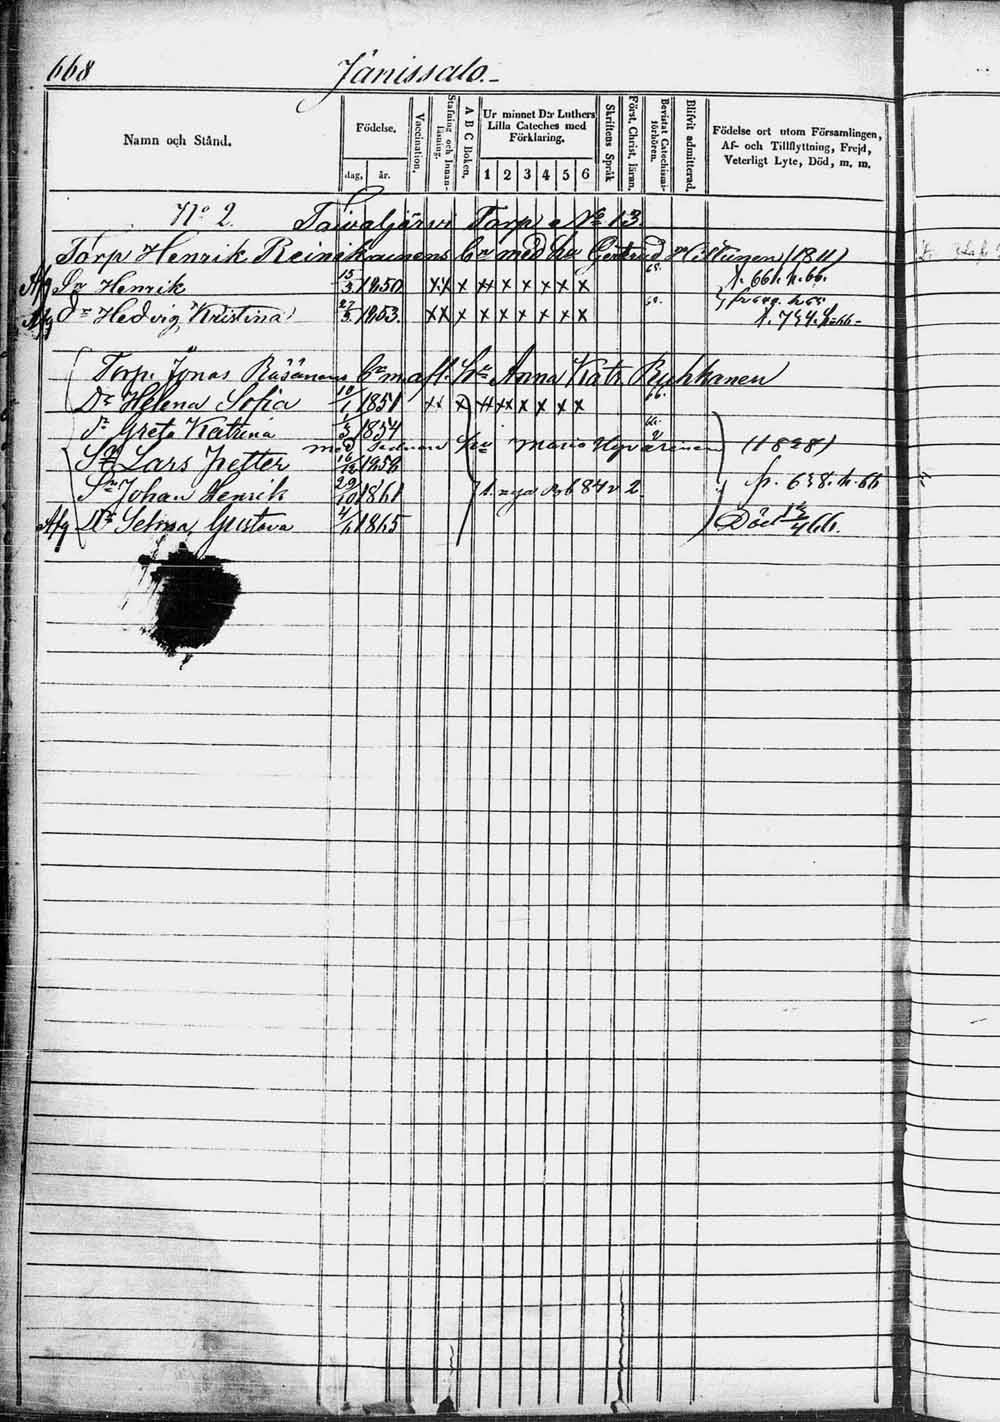 668 Jänissalo.
Namn och Stånd.
Födelse.
dag. år.
Vaccination.
Stafning och Innanläsning.
A B C Boken.
Ur minnet D:r Luthers Lilla Cateches med Förklaring.
1 2 3 4 5 6
Skriftens Språk
Först, Christ, läran.
Bevistat Catechismiförhören.
Blifvit admitterad.
Födelse ort utom Församlingen, Af- och Tillflyttning, Frejd, Veterligt Lyte, Död, m. m.
No 2. Taivaljärvi Torp No 13.
Torp Henrik Reinikainens Bn med hu Gertrud Hiltunen (1811)
Afg Sn Henrik 15/3 1850 xx x xx x x x x x 65. f. 661. h. 66.
Afg Dr Hedvig Kristina 27/3 1853. xx x x x x x x x
f. 794.
Torp. Jonas Räsänens Bn m afl. hu Anna Katr Ryhkänen
Dr Helena Sofia 1851 xx x xx xx x x x x 66.
Dr Greta Katrina 1854
Maria (1828)
Sn Lars Petter 16/12 1856
Sn Johan Henrik 29/10 1861 684 2 p. 638. h. 66
Afg Dr Selma Gustava 1865 Död 66.